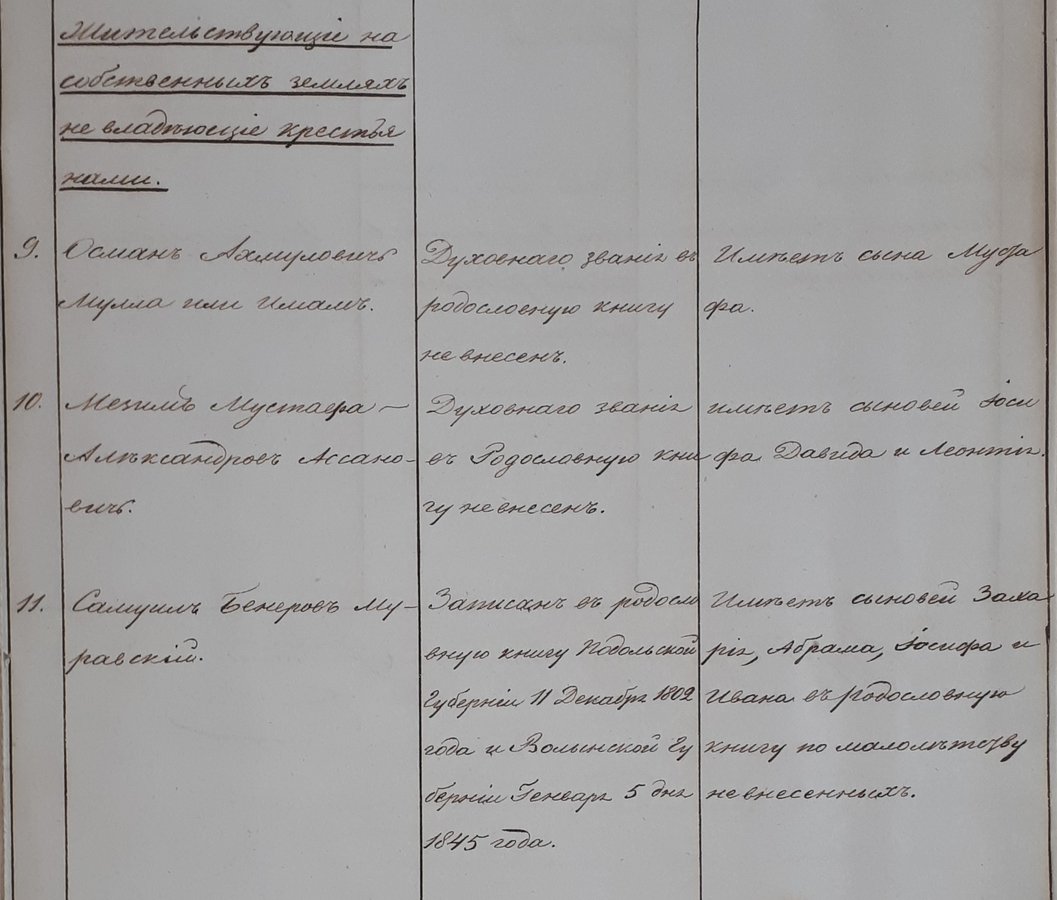 Жительствующіе на
собственныхъ земляхъ
не владѣющіе крестья
нами.
9.
Османъ Ахмуловичъ
Мулла или Имамъ.
Духовнаго званія въ
родословную книгу
не внесенъ.
Имѣетъ сына Муста
фа.
10.
Мустафа —
Алѣксандровъ Ассано-
вичъ.
Духовнаго званія
въ Родословную кни
гу не внесенъ.
имѣетъ сыновей Іоси
фа Давида и Леонтія.
11.
Самуилъ Бекеровъ Му-
равскій.
Записанъ въ родосло
вную книгу Подольской
Губерніи 11 Декабря 1802
года и Волынской Гу
берніи Генваря 5 дня
1845 года.
Имѣетъ сыновей Заха
рія, Абрама, Іосифа и
Ивана въ родословную
книгу по малолѣтству
не внесенныхъ.